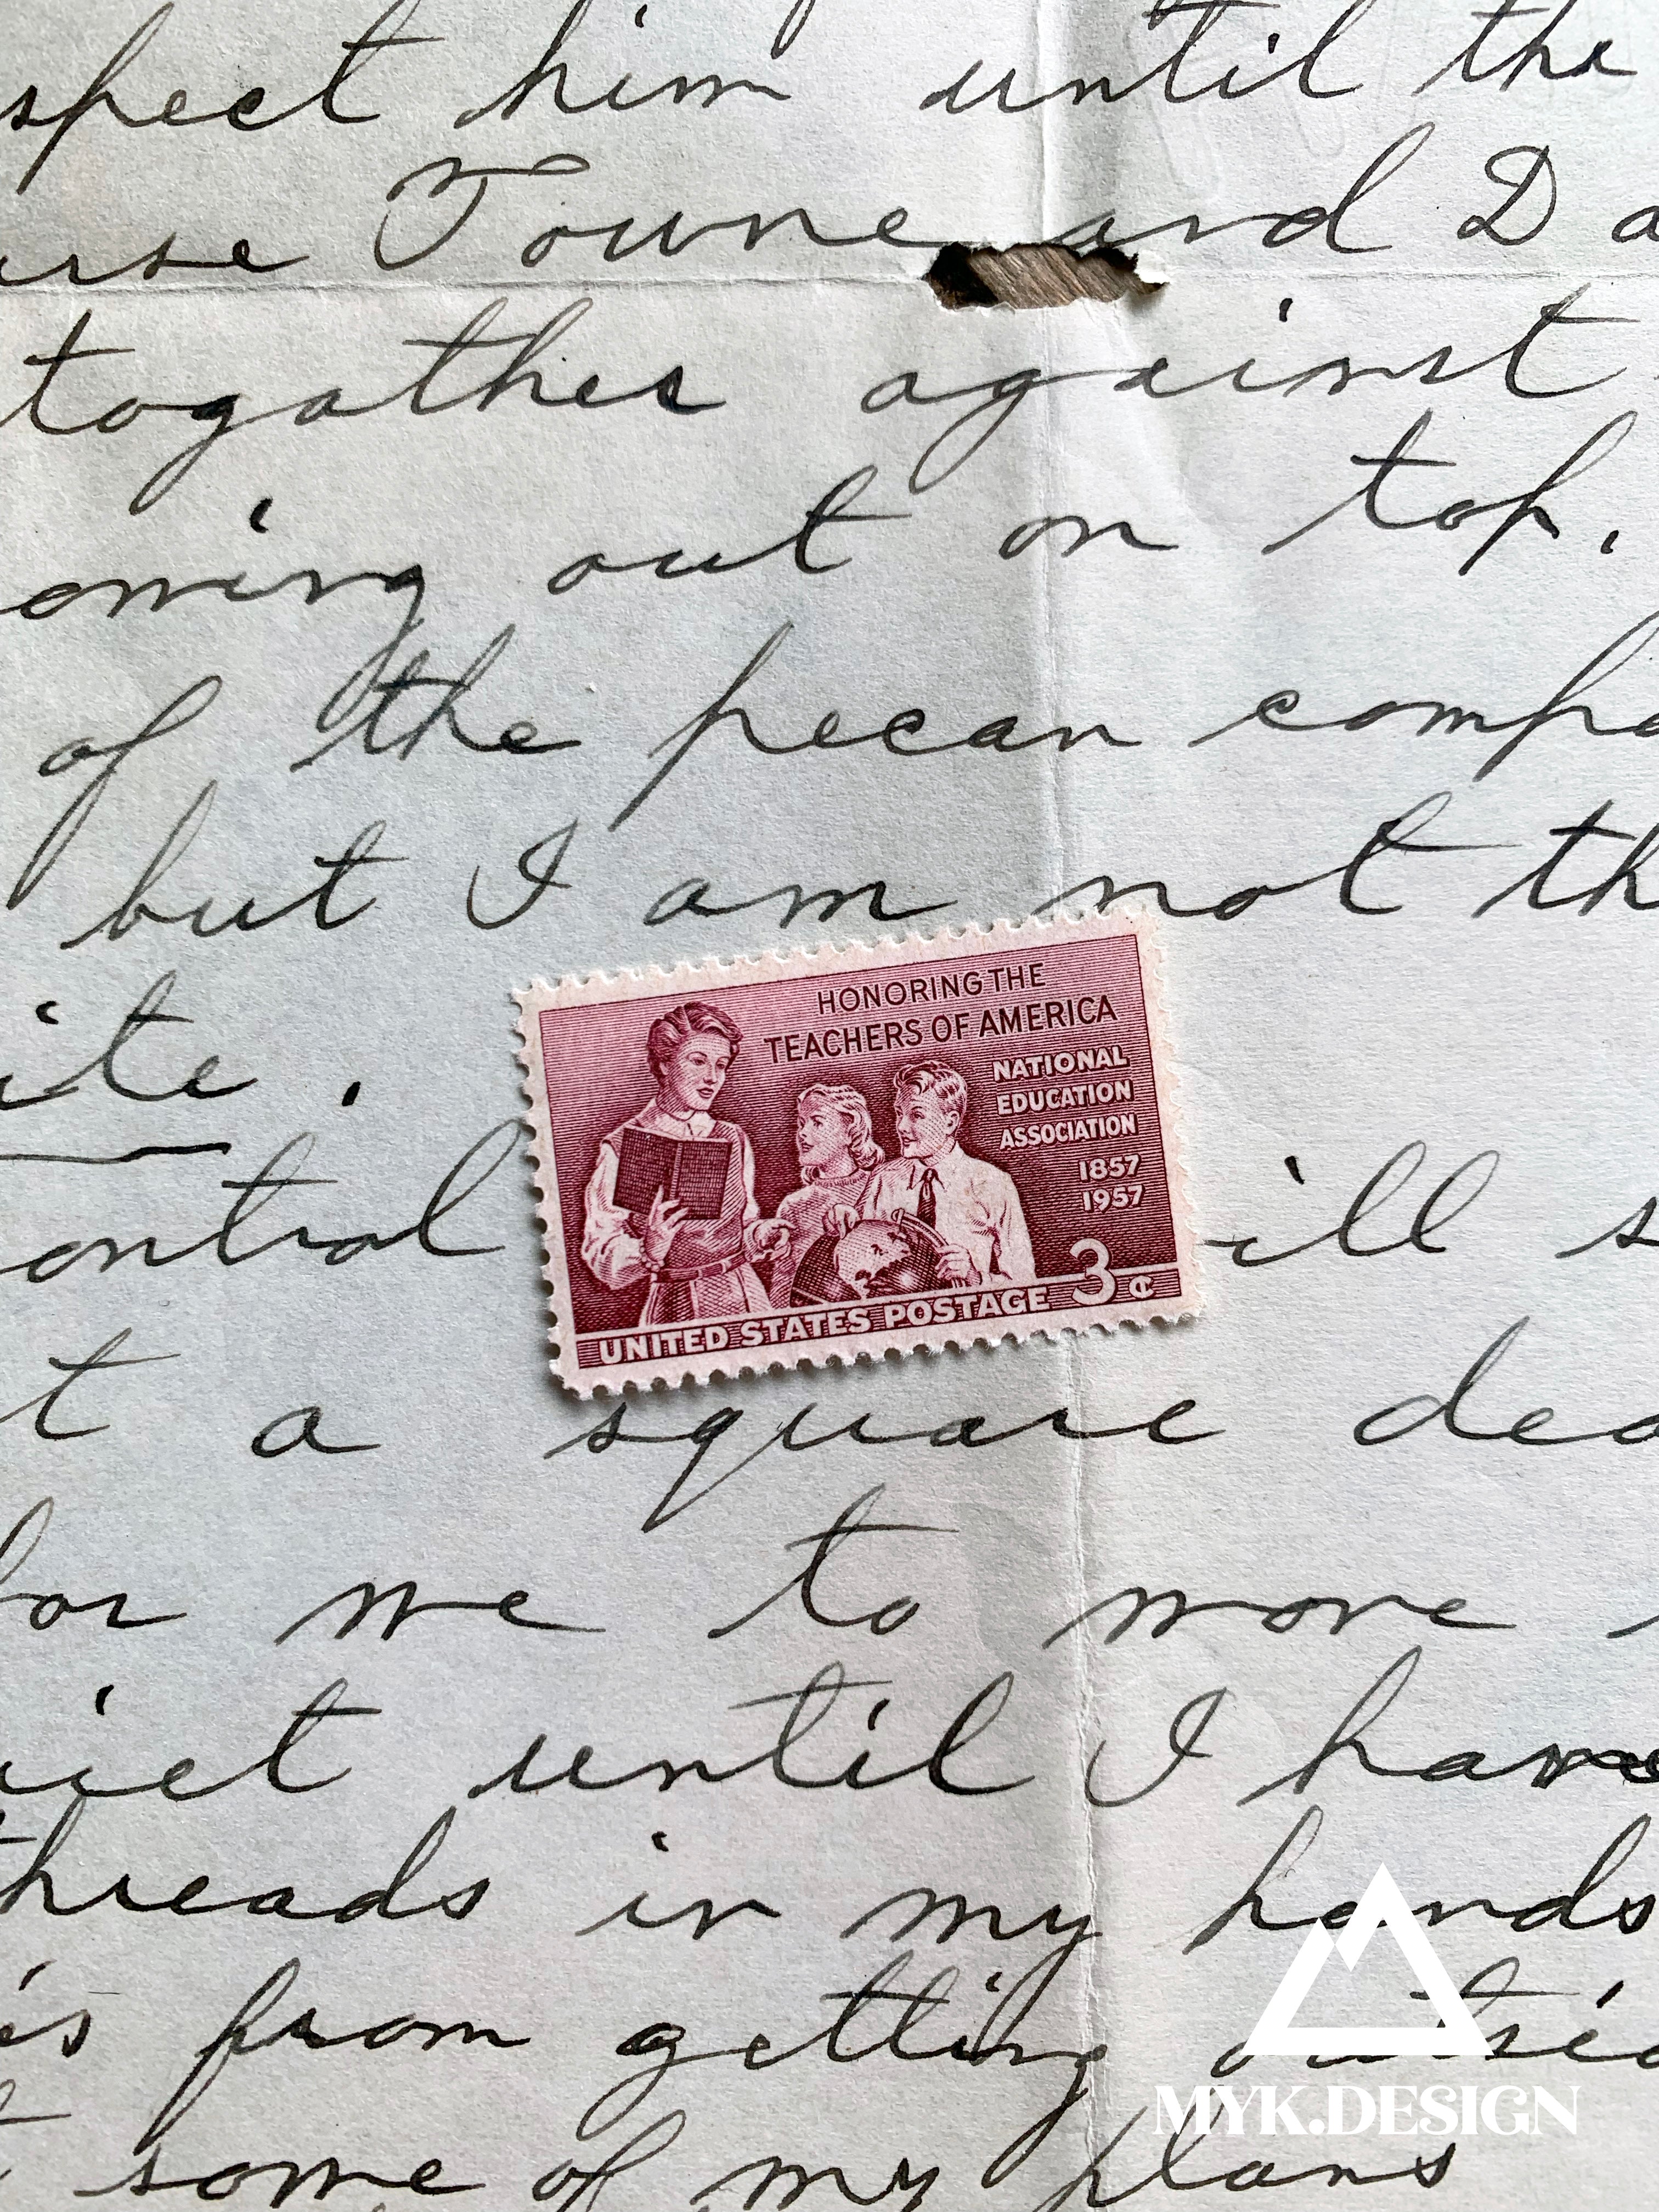 spect him until the
urse Towne and Da
togather against
oming out on top.
of the pecan compa
but I am not th
ite.
HONORING THE
TEACHERS OF AMERICA
NATIONAL
EDUCATION
ASSOCIATION
1857
1957
3¢
UNITED STATES POSTAGE
ontrol ill s
t a square dea
for me to move
uiet until I have
threads in my hands
is from getting outsid
some of my plans
MYK.DESIGN